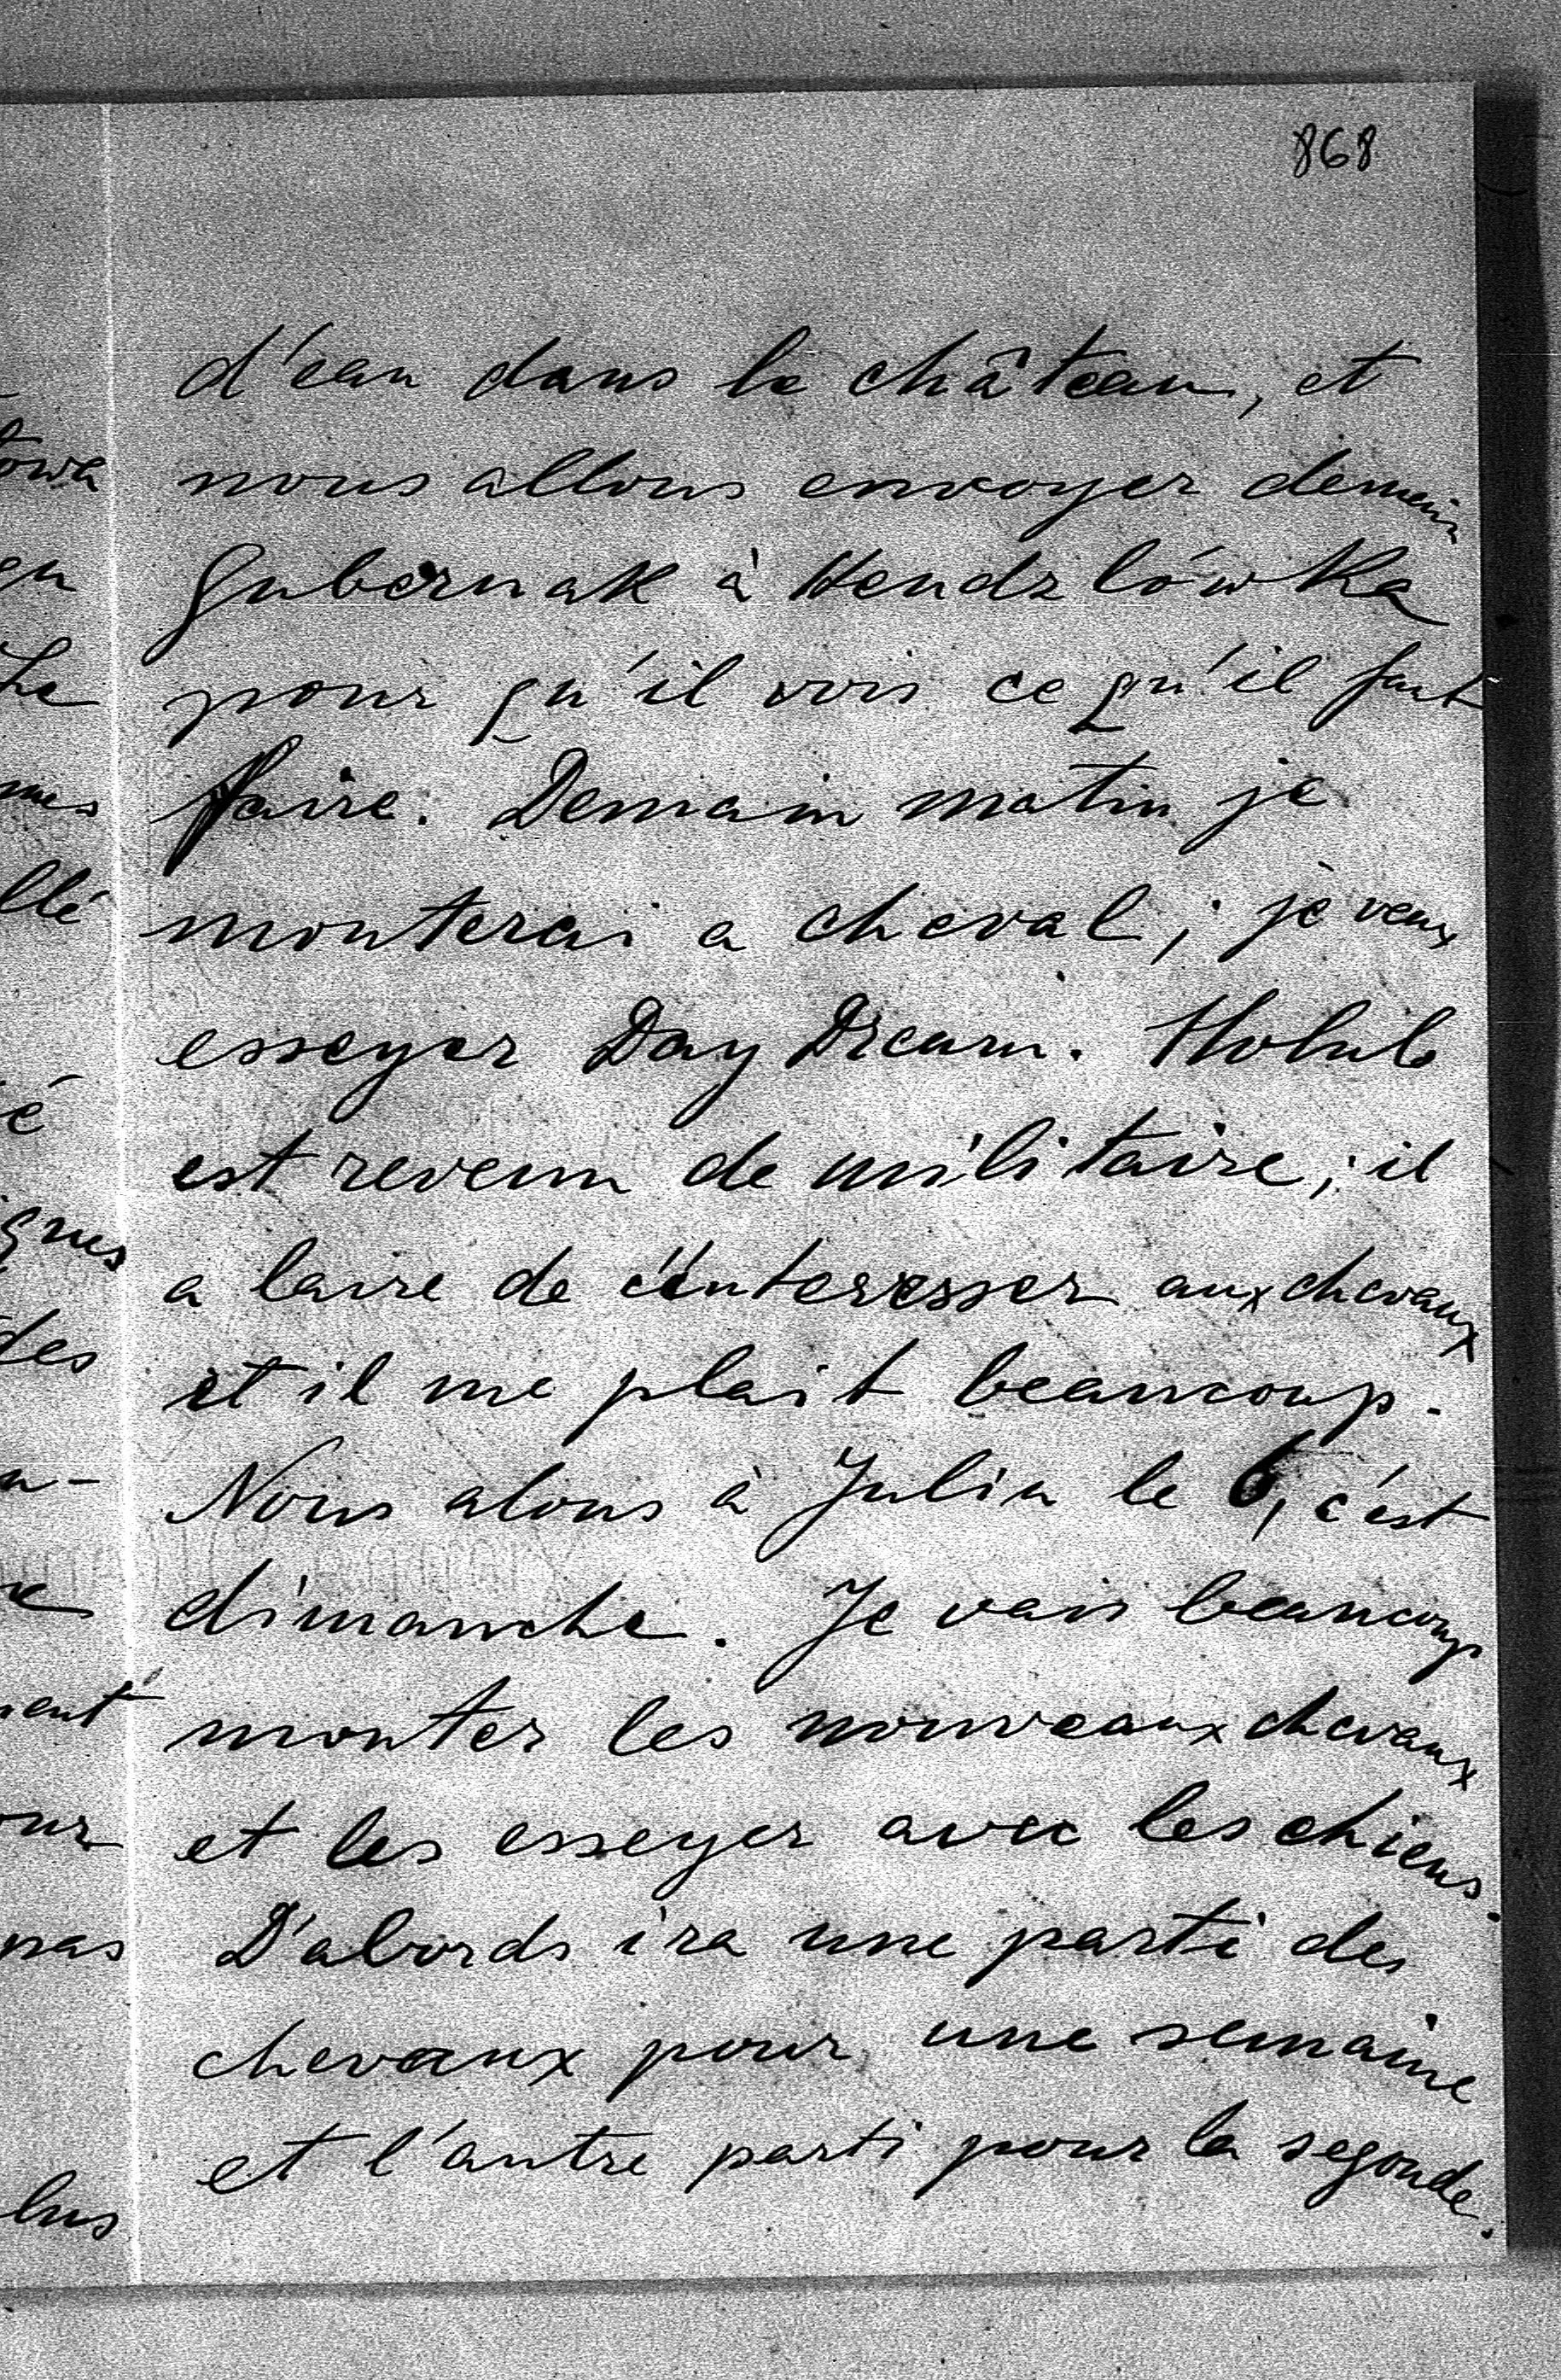 868
d'eau dans le château, et
nous allons envoyer demein
Gubernak à Hendzlówka
pour qu'il vois ce qu'il faut
faire. Demain matin je
monterai a cheval; je veux
esseyer Day Dream. Holub
est revenu de militaire; il
a laire de c'enteresser aux chevaux
et il me plait beaucoup.
Nous alons à Julin le 6, c'est
dimanche. Je vais beaucoup
monter les nouveaux chevaux
et les esseyer avec les chiens.
D'abords ira une parti des
chevaux pour une semaine
et l'autre parti pour la segonde.